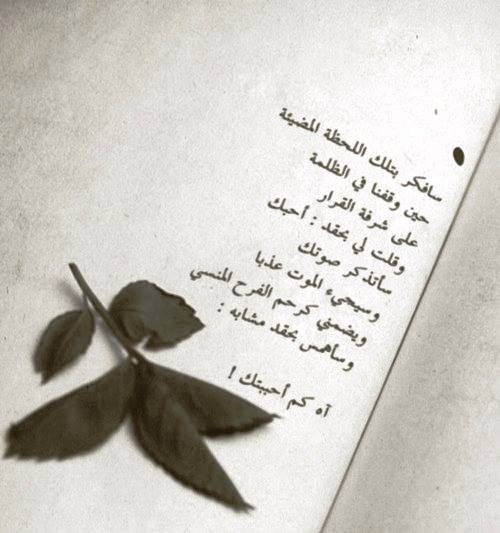 سافكر بتلك اللحظة المضيئة
حين وقفنا في الظلمة
على شرفة القرار
وقلت لي بحقد : أحبك
سأتذكر صوتك
وسيجيء الموت عذبا
ويضمني كرحم الفرح المنسي
وسأهمس بحقد مشابه :
آه كم أحببتك !